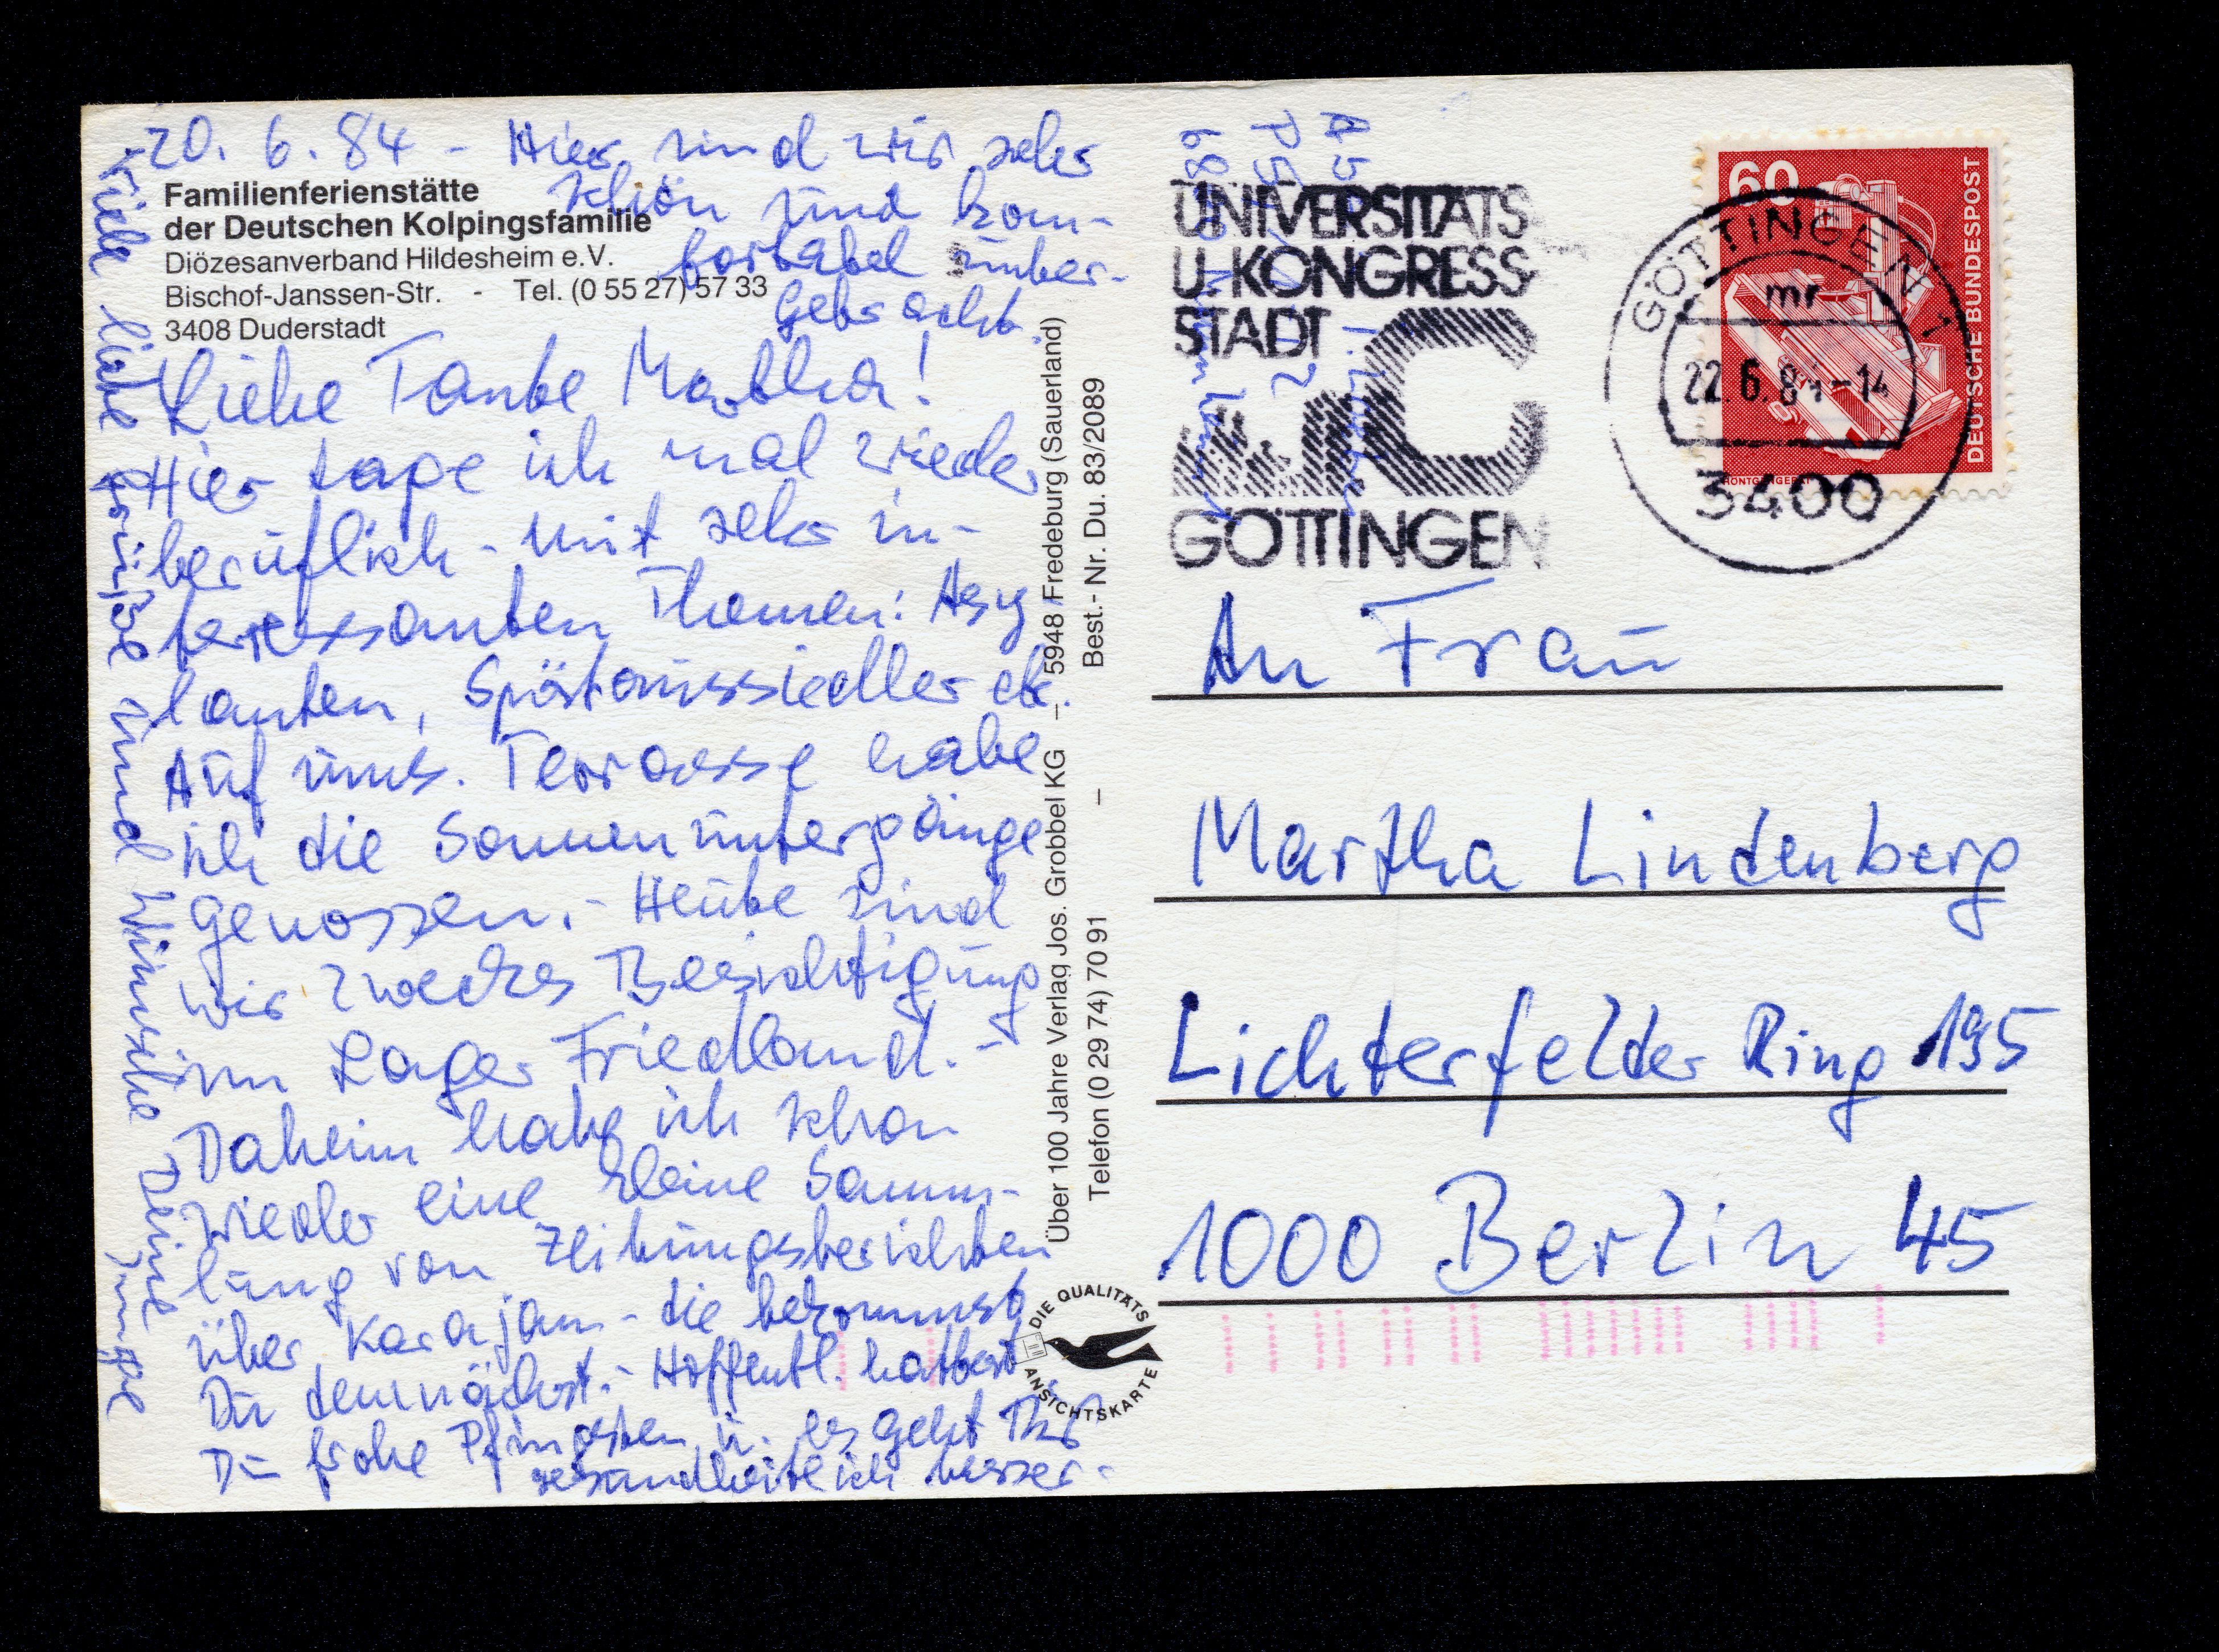 20. 6. 84 - Hier sind wir sehr
schön und kom-
fortabel unter-
gebracht.
Familienferienstätte
der Deutschen Kolpingsfamilie
Diözesanverband Hildesheim e.V.
Bischof-Janssen-Str. - Tel. (0 55 27) 57 33
3408 Duderstadt
Liebe Tante Martha!
Hier tage ich mal wieder
beruflich - mit sehr in-
teressanten Themen: Asy-
lanten, Spätaussiedler etc.
Auf uns. Terrasse habe
ich die Sonnenuntergänge
genossen. - Heute sind
wir zwecks Besichtigung
im Lager Friedland. -
Daheim habe ich schon
wieder eine kleine Samm-
lung von Zeitungsberichten
über Karajan - die bekommst
Du demnächst. - Hoffentl. hattest
Du frohe Pfingsten u. es geht Dir
gesundheitlich besser -
Viele liebe Grüße und Wünsche Deine
Über 100 Jahre Verlag Jos. Grobbel KG – 5948 Fredeburg (Sauerland)
Telefon (0 29 74) 70 91 – Best.- Nr. Du. 83/2089
DIE QUALITÄTS
ANSICHTSKARTE
UNIVERSITÄTS-
U. KONGRESS-
STADT
GÖTTINGEN
60
DEUTSCHE BUNDESPOST
RÖNTGENGERÄT
GÖTTINGEN 1
mr
22.6.84-14
3400
An Frau
Martha Lindenberg
Lichterfelder Ring 195
1000 Berlin 45